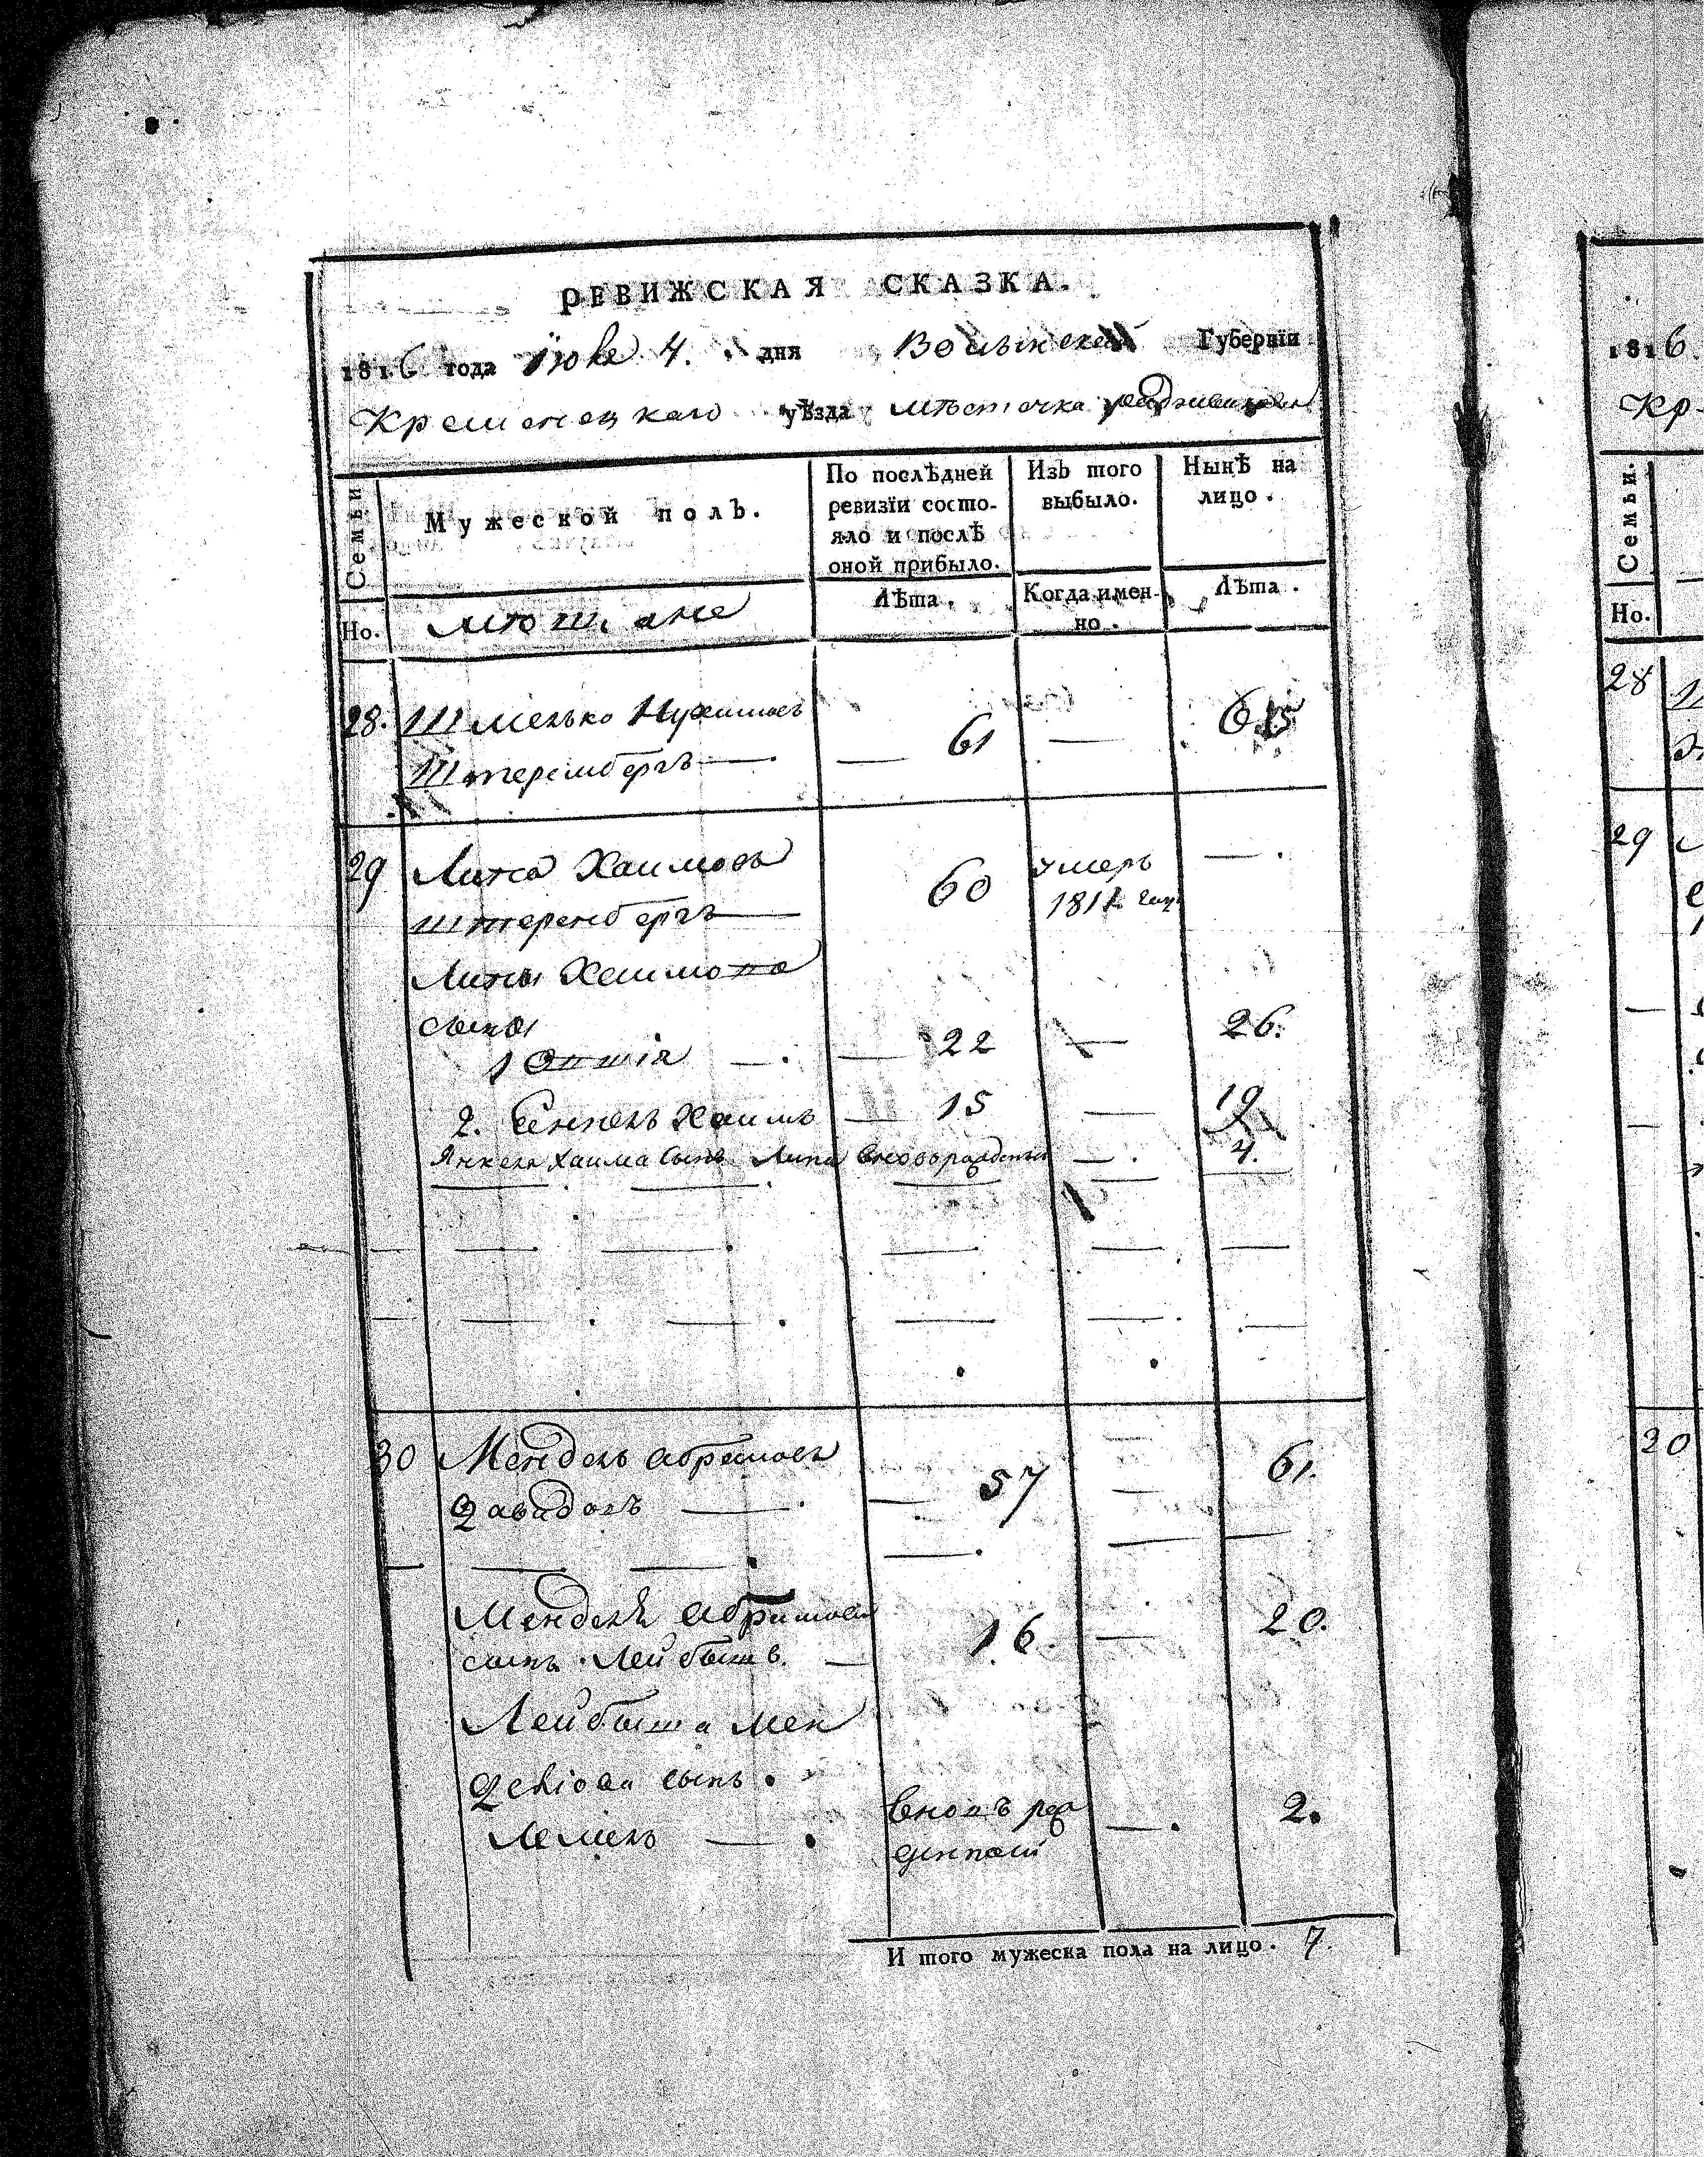 РЕВИЖСКАЯ СКАЗКА.
1816 года Іюля 4. дня Волынской Губерніи
Кременецкаго уѣзда мѣстечка
Семьи
Мужеской полъ.
По послѣдней ревизіи состо-
яло и послѣ
оной прибыло.
Изъ того
выбыло.
Нынѣ на
лицо.
Но.
мѣщане
Лѣта.
Когда имен-
но.
Лѣта.
28. Шмелько Нухимовъ
Штернбергъ — 61 — 65
29 Липа Хаимовъ
штеренбергъ 60 умеръ
1811 году —
Липы Хаимова
сыны
1 — 22 — 26.
2. Янкель Хаимъ — 15 — 19
Янкеля Хаима сынъ Липа вноворожденъ — 4.
30 Мендель Абрамовъ
Давидокъ — 57 — 61.
Менделя Абрамова
сынъ Лейбышъ — 16. — 20.
Лейбыша Мен
делiова сынъ.
Лемель — вновъ рож
денной — 2.
И того мужеска пола на лицо. 7.
1816
Кр
Семьи.
Но.
28
29
20